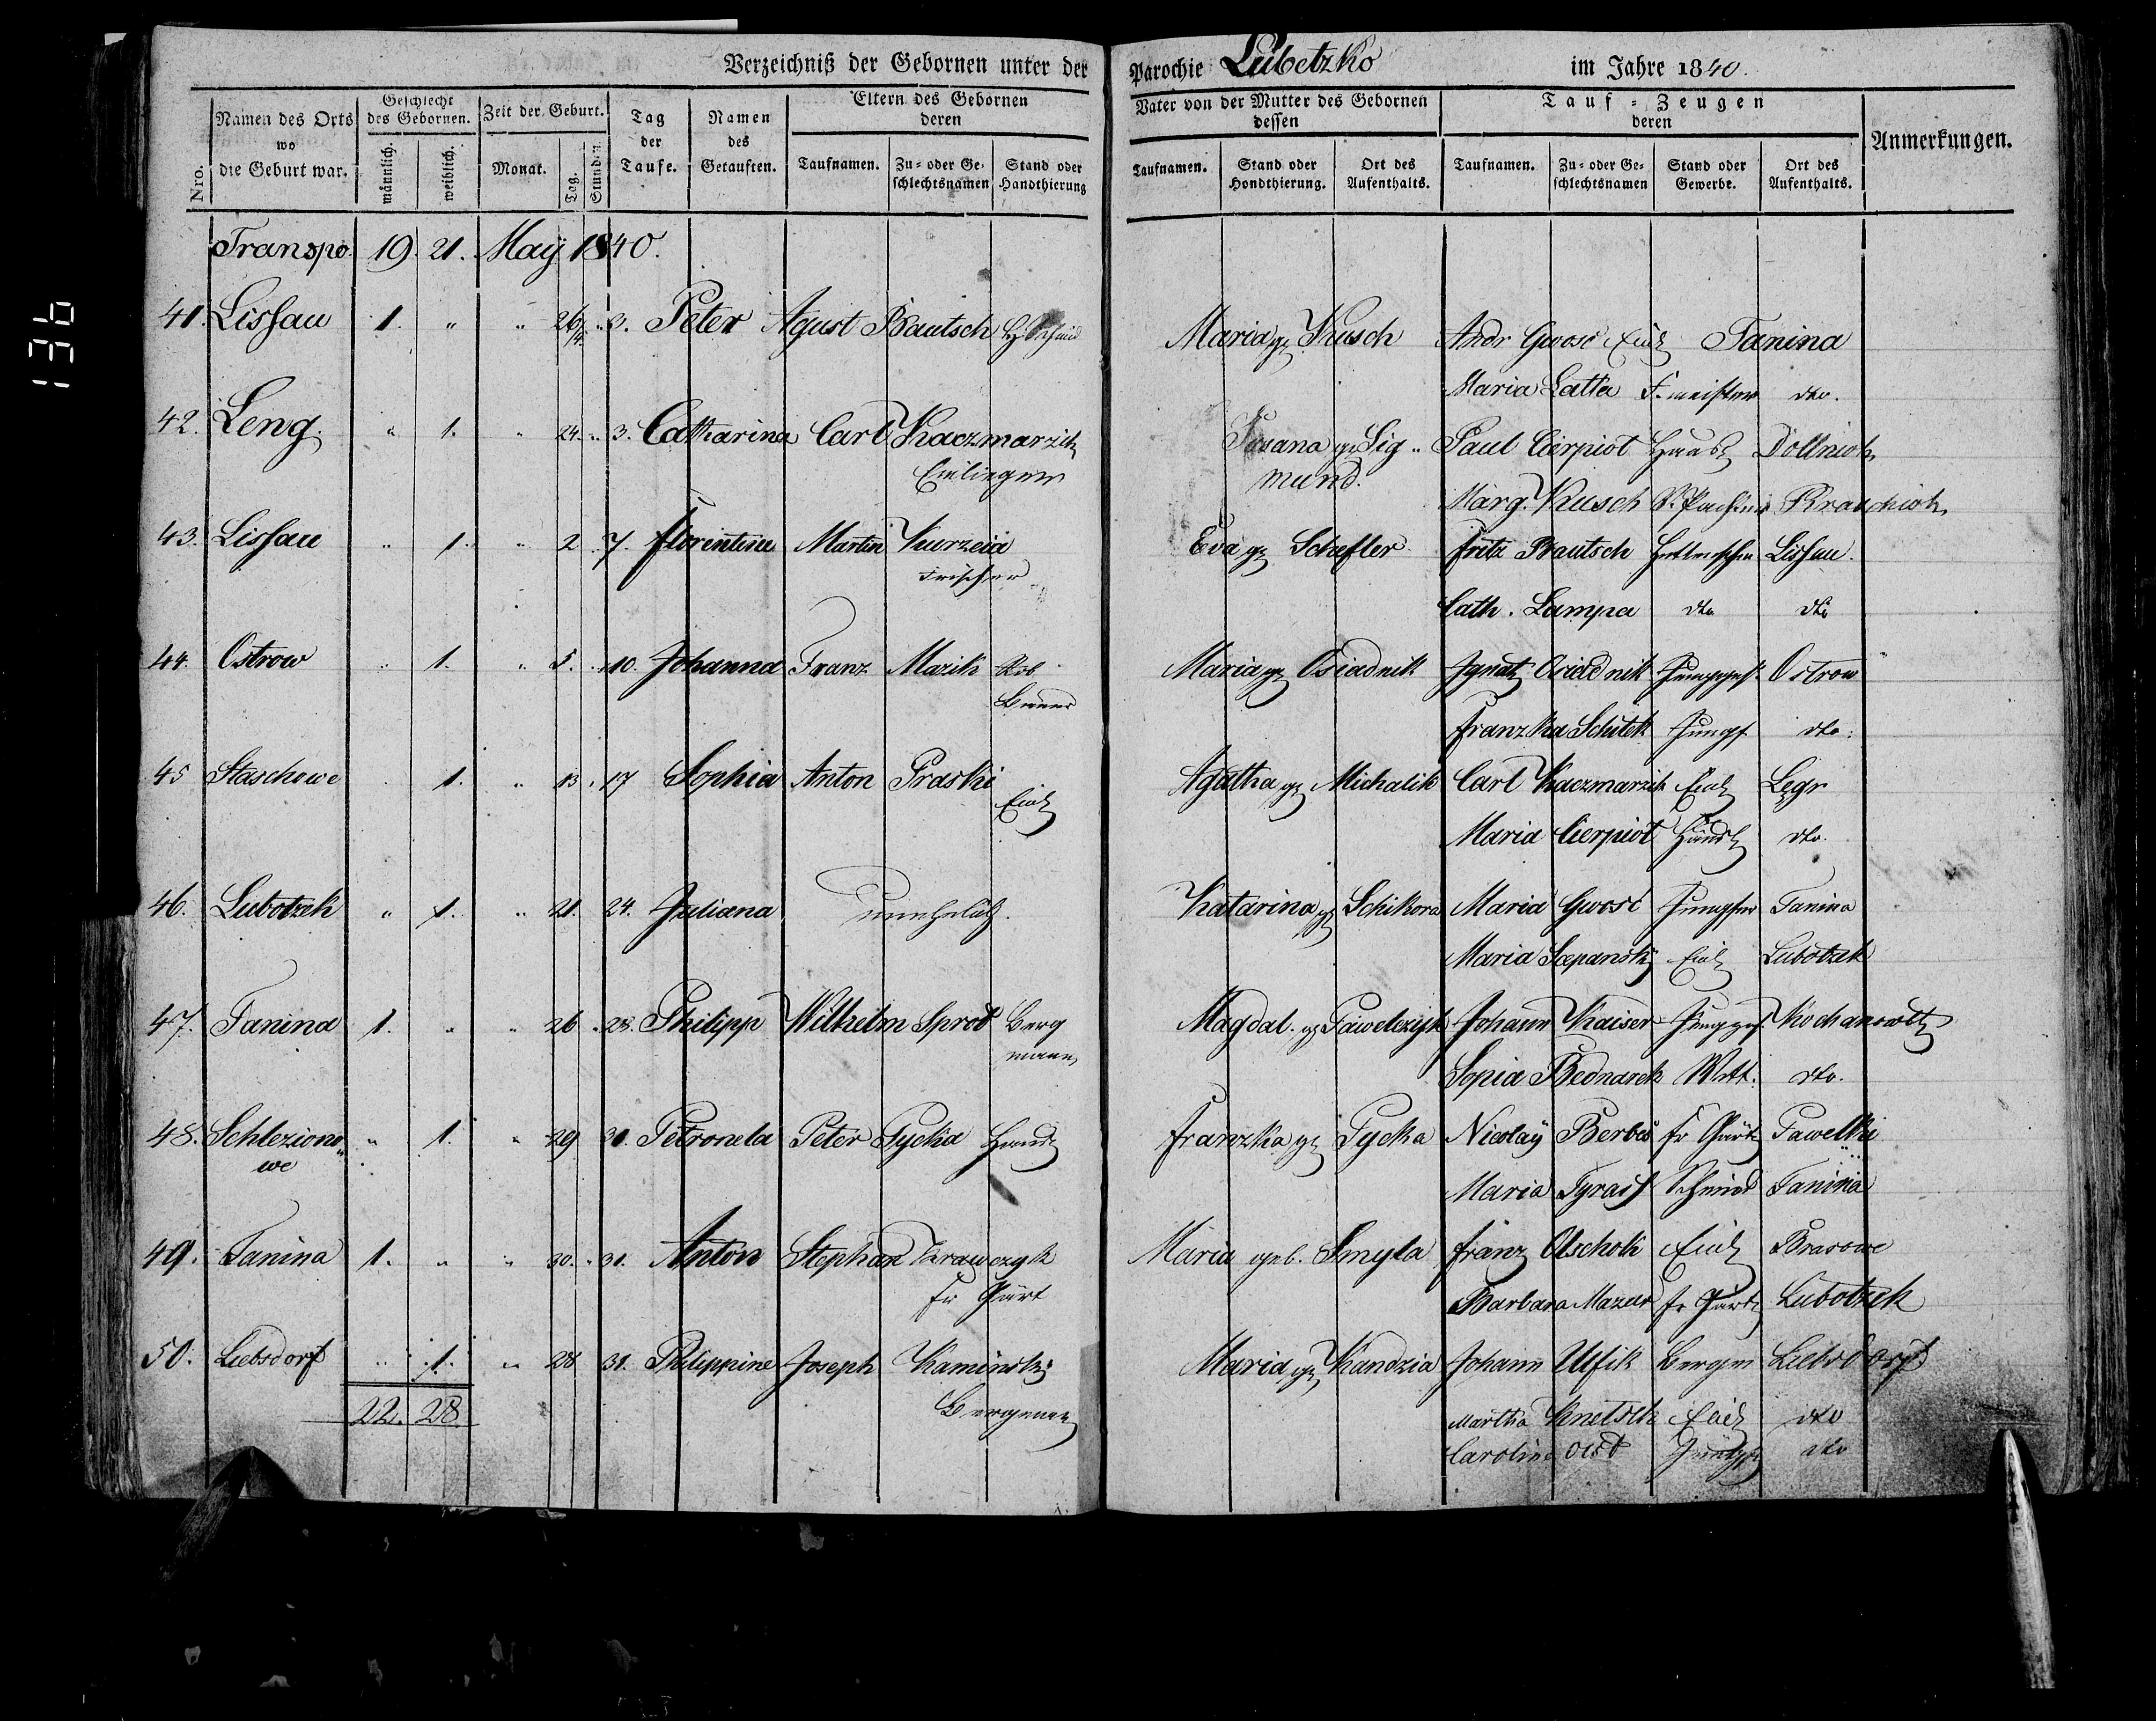 136
Verzeichniß der Gebornen unter der Parochie Lubetzko im Jahre 1840.
Nro.
Namen des Orts wo die Geburt war.
Geschlecht des Gebornen.
männlich.
weiblich.
Zeit der Geburt.
Monat.
Tag.
Stunden
Tag der Taufe.
Namen des Getauften.
Eltern des Gebornen deren
Taufnamen.
Zu- oder Geschlechtsnamen
Stand oder Handthierung
Vater von der Mutter des Gebornen dessen
Taufnamen.
Stand oder Hondthierung.
Ort des Aufenthalts.
Tauf-Zeugen deren
Taufnamen.
Zu- oder Geschlechtsnamen
Stand oder Gewerbe.
Ort des Aufenthalts.
Anmerkungen.
Transpo. 19. 21. May 1840.
41. Lissau 1. " " 26/4 " 3. Peter Agust Bautsch Maria g. Kusch Andr Gwosc Einl Tanina
Maria Latta F. meister dto.
42. Leng. " 1. " 24. " 3. Catharina Carl Kaczmarzik Susana g. Sig- Paul Cierpiot Dollniok
Einlieger mund. Marg. Kusch
43. Lissau " 1. " 2 " 7. Florentine Martin Kurzeia Eva g. Schefler Fritz Bautsch Lissau.
Frischer Cath. Lampa dto dto
44. Ostrow " 1. " 5. " 10. Johanna Franz Mazik Maria g. Osiadnik Ignatz Osiadnik Jungges. Ostrow
Franzka Schitek Jungf dto.
45 Staschowe 1. " 13 " 17 Sophia Anton Praski Einl Agatha g. Michalik Carl Kaczmarzik Einl Legr
Maria Cierpiot Häusl dto.
46. Lubotzek " 1. " 21. 24. Juliana unehelich. Katarina g. Schikora Maria Gwosc Jungfer Tanina
Maria Scepansky Einl Lubotzek
47. Tanina 1. " " 26 " 28. Philipp Wilhelm Sprot Berg Magdal. g. Pawelczyk Johann Kaiser Jungges. Kochanowitz
mann Sopia Bednarek Witt. dto.
48. Schleziono- " 1. " 29 31. Petronela Peter Pycka Franzka g. Pycka Nicolaÿ Berbes fr Gärt Pawelke
we Maria Schmied Tanina
49. Tanina 1. " " 30. " 31. Anton Stephan Krawczyk Maria geb. Smyla Franz Olschok Einl Brasowe
fr Gärt Barbara Mazur fr Gärt Lubotzek
50. Liebsdorf " 1. " 28 31. Philippine Joseph Kaminski Maria g. Kandzia Johann Ulfik Bergm Liebsdorf
22. 28 Bergmann Martha Knetsch Einl dto
Caroline dto